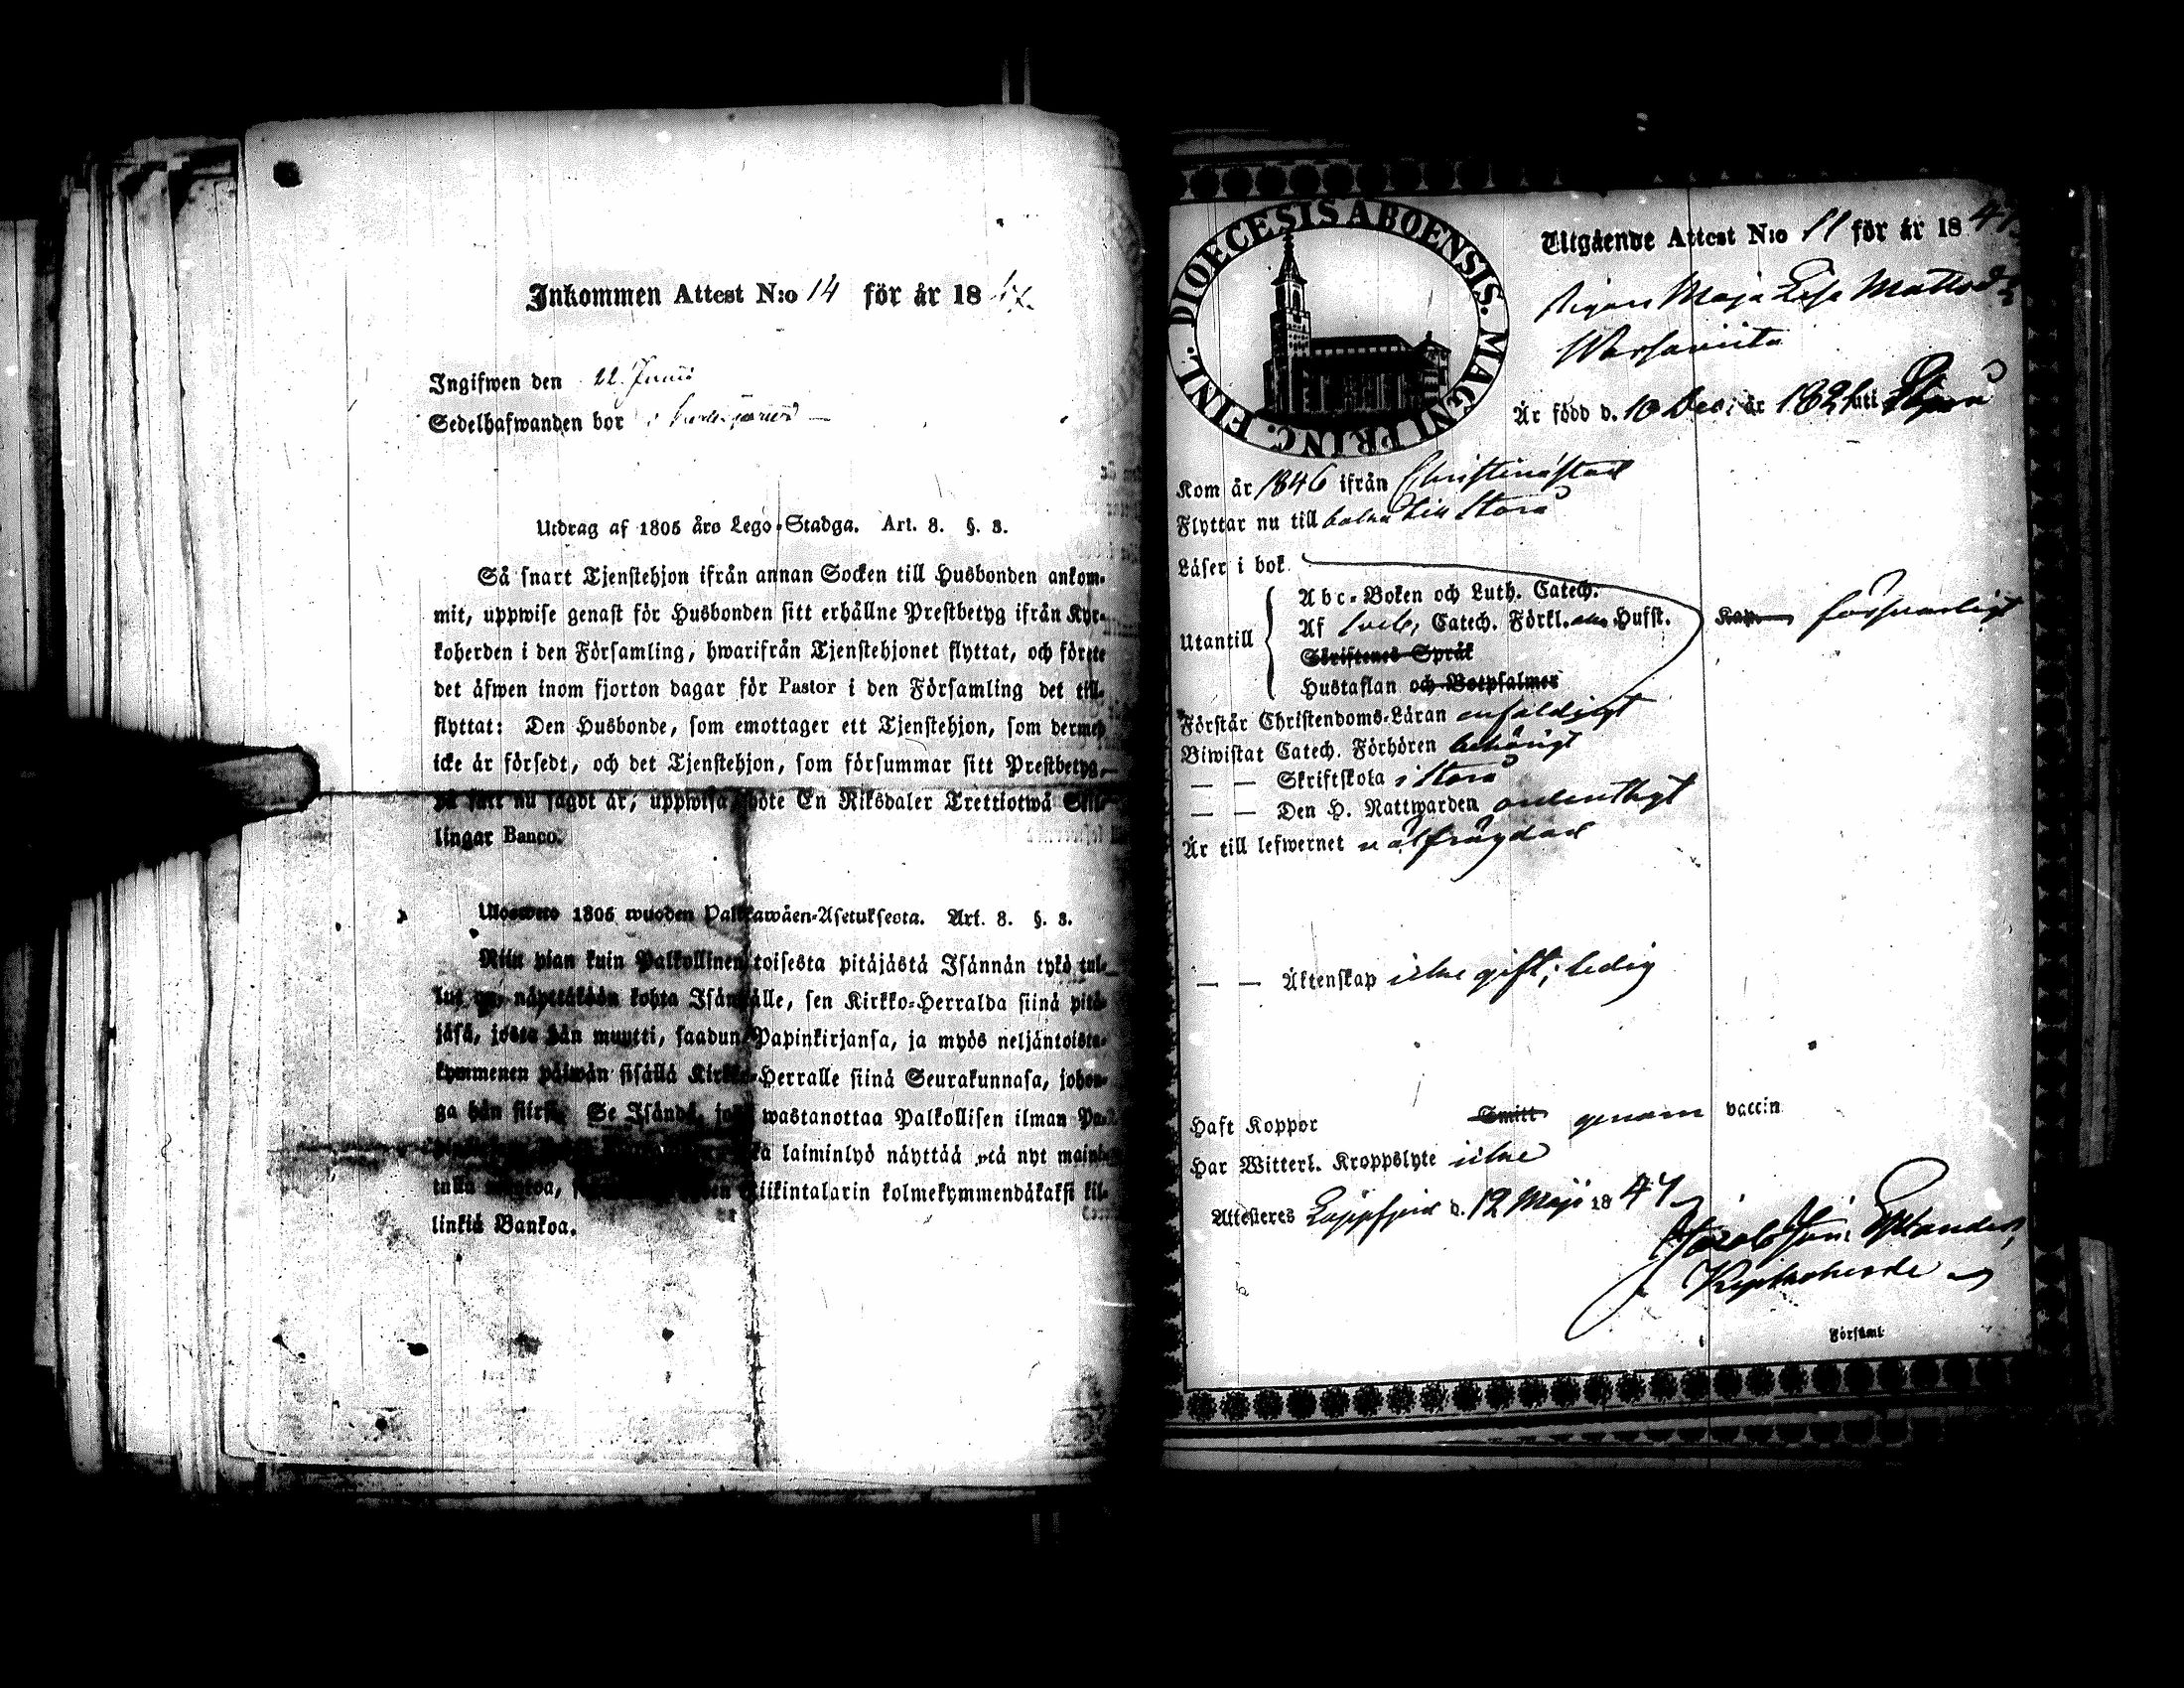 Inkommen Attest N:o 14 för år 1847
Ingifwen den 22 Junii
Sedelhafwanden bor i
Utdrag af 1805 års Lego-Stadga. Art. 8. §. 3.
Så snart Tjenstehjon ifrån annan Socken till Husbonden ankom-
mit, uppwise genast för Husbonden sitt erhållne Prestbetyg ifrån Kyr-
koherden i den Församling, hwarifrån Tjenstehjonet flyttat, och förete
det äfwen inom fjorton dagar för Pastor i den Församling det till-
flyttat: Den Husbonde, som emottager ett Tjenstehjon, som dermed
icke är försedt, och det Tjenstehjon, som försummar sitt Prestbetyg,
på sätt nu sagdt är, uppwisa, böte En Riksdaler Trettiotwå Skil-
lingar Banco.
Ulosweto 1805 wuoden Palkkawäen-Asetuksesta. Art. 8. §. 3.
Niin pian kuin Palkollinen toisesta pitäjästä Isännän tykö tul-
lut on, näyttäköön kohta Isännälle, sen Kirkko-Herralda siinä pitä-
jäsä, josta hän muutti, saadun Papinkirjansa, ja myös neljäntoista-
kymmenen päiwän sisällä Kirkko-Herralle siinä Seurakunnasa, johon-
ga hän siirsi. Se Isändä, joka wastanottaa Palkollisen ilman Pa-
laiminlyö näyttää sitä nyt mainit-
tulla Riikintalarin kolmekymmendäkaksi kil-
linkiä Bankoa.
DIOECESIS ABOENSIS. MAGNI PRINC. FINL.
Utgående Attest N:o 11 för år 1847
Pigan Maja Lisa Mattsd:r
Är född d. 10 Dec. år 1821 uti Storå
Kom år 1846 ifrån Christinestad
Flyttar nu till baka till Storå
Läser i bok
Abc-Boken och Luth. Catech.
Utantill Af Sveb. Catech. Förkl. Husst. försvarligt
Skriftenes Språk
Hustaflan och Botpsalmer
Förstår Christendoms-Läran enfaldigt
Biwistat Catech. Förhören behörigt
— — Skriftskola i Storå
— — Den H. Nattwarden ordentligt
Är till lefwernet välfrägdad
— — Äktenskap icke gift; ledig
Haft Koppor Smitt genom vaccin
Har Witterl. Kroppslyte icke
Attesteres Lappfjerd d. 12 Maji 1847
Kyrkoherde
Församl.